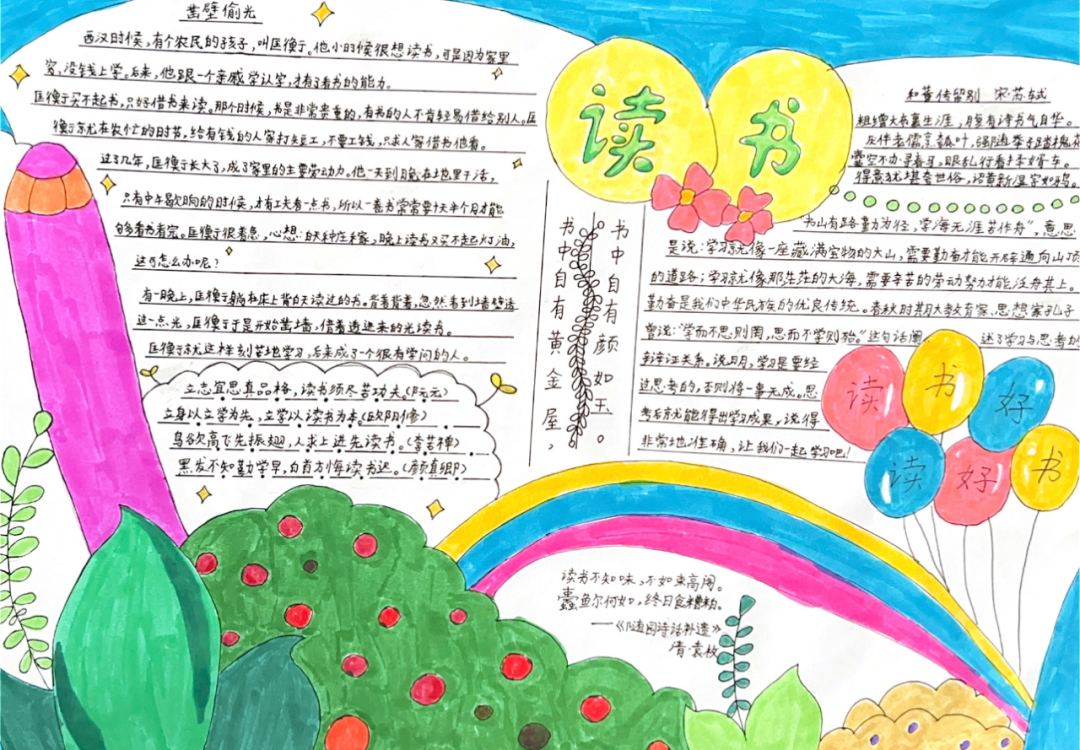 凿壁偷光
西汉时候，有个农民的孩子，叫匡衡于。他小时候很想读书，可是因为家里
穷，没钱上学。后来，他跟一个亲戚学认字，才有了看书的能力。
匡衡于买不起书，只好借书来读。那个时候，书是非常贵重的，有书的人不肯轻易借给别人。匡
衡于就在农忙的时节，给有钱的人家打短工，不要工钱，只求人家借书他看。
过了几年，匡衡于长大了，成了家里的主要劳动力。他一天到晚在地里干活，
只有中午歇晌的时候，才有工夫看一点书，所以一卷书常常要十天半个月才能
够看书看完。匡衡于很着急，心想：白天种庄稼，晚上读书又买不起灯油，
这可怎么办呢？
有一晚上，匡衡于躺在床上背白天读过的书。背着背着，忽然看到墙壁透
这一点光，匡衡于于是开始凿墙，借着透进来的光读书。
匡衡于就这样刻苦地学习，后来成了一个很有学问的人。
立志宜思真品格，读书须尽苦功夫。《阮元》
立身以立学为先，立学以读书为本。《欧阳修》
鸟欲高飞先振翅，人求上进先读书。《李苦禅》
黑发不知勤学早，白首方悔读书迟。《颜真卿》
读书
书中自有颜如玉。
书中自有黄金屋，
和董传留别 宋·苏轼
粗缯大布裹生涯，腹有诗书气自华。
厌伴老儒烹瓠叶，强随举子踏槐花
囊空不办寻春马，眼乱行看择婿车。
得意犹堪夸世俗，诏黄新湿字如鸦。
书山有路勤为径，学海无涯苦作舟”，意思
是说：学习就像一座藏满宝物的大山，需要勤奋才能开辟通向山顶
的道路；学习就像那茫茫的大海，需要辛苦的劳动努力才能泛舟其上。
勤奋是我们中华民族的优良传统。春秋时期大教育家，思想家孔子
曾说：“学而不思则罔，思而不学则殆。”这句话阐 述了学习与思考的
辩证关系。说明，学习是要经
过思考的，否则将一事无成。思
考后就能得出学习成果，说得
非常地准确，让我们一起学习吧！
读书好
读好书
读书不知味，不如束高阁。
蠹鱼尔何如，终日食糟粕。
——《随园诗话补遗》
清·袁枚